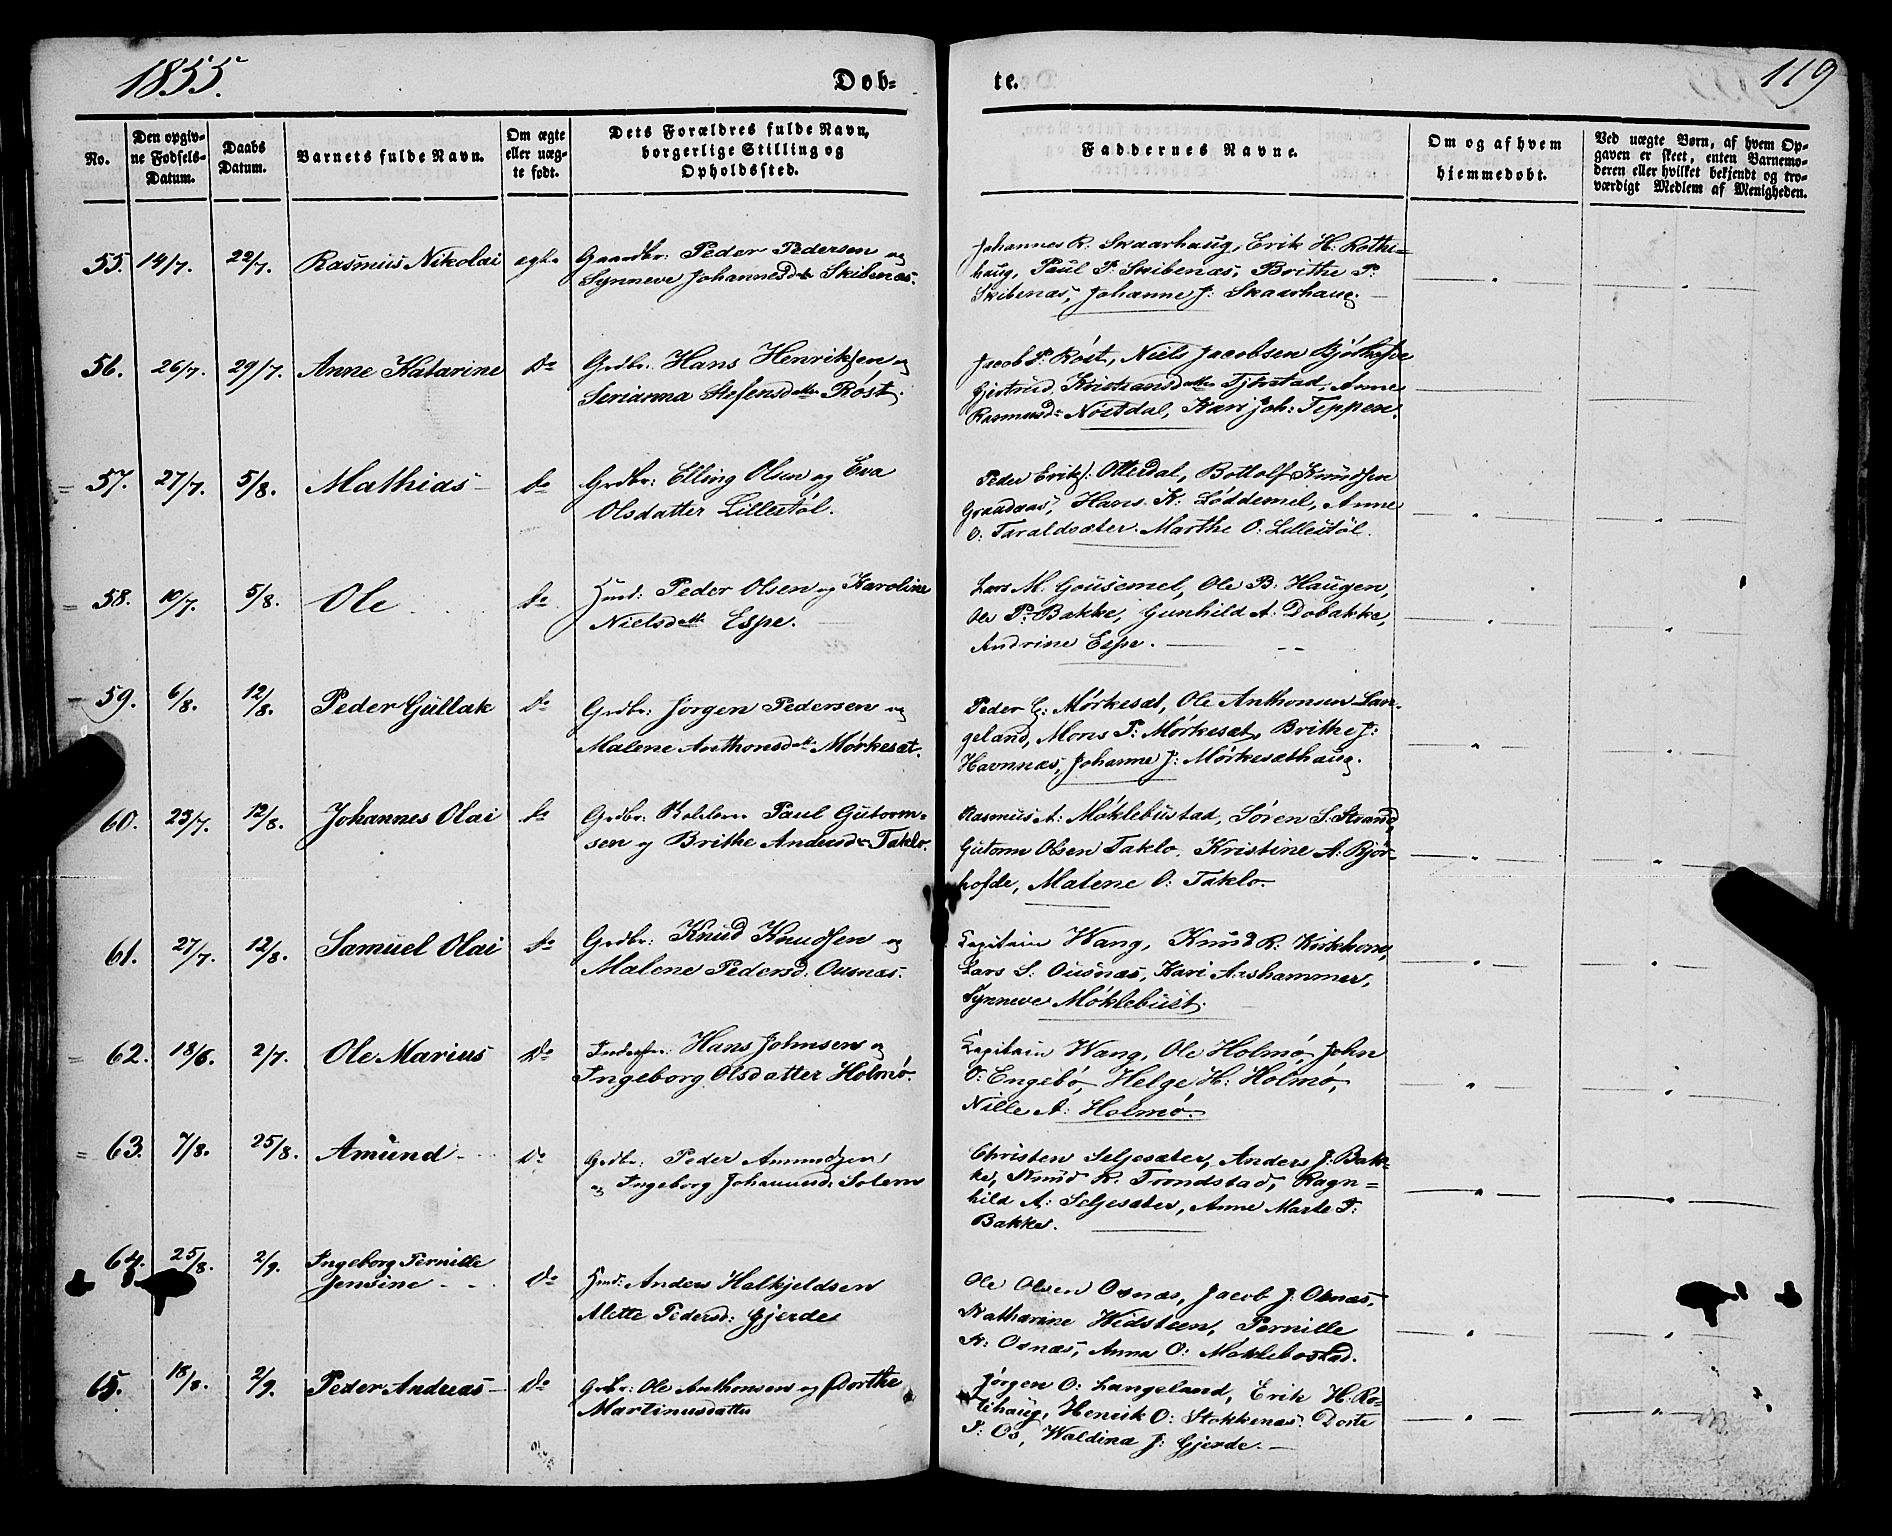 1855.
Døb-
te.
119
No.
Den opgiv-
ne Fødsels-
Datum.
Daabs
Datum.
Barnets fulde Navn.
Om ægte
eller uæg-
te født.
Dets Forældres fulde Navn,
borgerlige Stilling og
Opholdssted.
Faddernes Navne.
Om og af hvem
hjemmedøbt.
Ved uægte Børn, af hvem Op-
gaven er skeet, enten Barnemo-
deren eller hvilket bekjendt og tro-
værdigt Medlem af Menigheden.
55. 14/7. 22/7. Rasmus Nikolai
Gaardbr: Peder Pedersen og
Synneve Johannesd Skibenæs.
Johannes R: Skaarhaug, Erik H: Rothe-
haug, Paul P: Skibenæs, Brithe P:
Skibenæs, Johanne J: Skaarhaug.
56. 26/7. 29/7. Anne Katarine Do
Grdbr: Hans Henriksen og
Serianna Stefensdatter Røst.
Jacob P. Røst, Niels Jacobsen
Gjertrud Kristiansdatter Anne
Rasmusd: Nøstdal, Kari Joh: Teppen.
57. 27/7. 5/8. Mathias Do
Grdbr: Elling Olsen og Eva
Olsdatter Lillestøl.
Peder Eriks: Otterdal, Bottolf Knudsen
Hans K: Løddemel, Anne
O: Taraldsæter. Marthe O: Lillestøl.
58. 10/7. 5/8. Ole Do
Huusm: Peder Olsen og Karoline
Nielsdtt Espe.
Lars M. Gousemel, Ole B: Haugen,
Ole P: Bakke, Gunhild A: Dobakke,
Andrine Espe.
59. 6/8. 12/8. Peder Gullak Do
Grdbr: Jørgen Pedersen og
Malene Anthonsdtt Mørkesæt.
Peder G: Mørkesæt, Ole Anthonsen Lan-
geland, Mons P: Mørkesæt, Brithe J:
Havnnæs, Johanne J: Mørkesæthaug.
60. 23/7. 12/8. Johannes Olai Do
Grdbr: Paul Gutorm-
sen og Brithe Andersd: Taklo.
Rasmus A: Møklebustad, Søren S: Strand,
Gutorm Olsen Taklo, Kristine A: Bjør-
hofde, Malene O: Taklo.
61. 27/7. 12/8. Samuel Olai Do
Grdbr: Knud Knudsen og
Malene Pedersd: Ousnæs.
Capitain Wang, Knud R: Kirkhorn,
Lars S: Ousnæs, Kari Aashammer,
Synneve Møklebust.
62. 18/6. 2/7. Ole Marius Do
Hans Johnsen og
Ingeborg Olsdatter Holmø.
Capitain Wang, Ole Holmø, John
O: Engebø, Helge H: Holmø,
Nille A: Holmø.
63. 7/8. 25/8. Amund Do
Grdbr: Peder Amundsen
og Ingeborg Johannesd: Solem
Christen Seljesæter, Anders J: Bak-
ke, Knud R. Trondstad, Ragn-
hild A: Seljesæter, Anne Marte P:
Bakke.
64. 25/8. 2/9. Ingeborg Pernille
Jensine Do
Huusm: Anders Halkjeldsen
Mette Pedersd: Gjerde
Ole Olsen Osnæs, Jacob J: Osnæs,
Katharine Hidsteen, Pernille
K: Osnæs, Anna O: Møklebostad.
65. 18/8. 2/9. Peder Andreas Do
Grdbr: Ole Anthonsen og Dorthe
Martinusdatter
Jørgen O: Langeland, Erik H: Ro-
tihaug, Henrik O: Stokkenæs. Dorte
P: Os, Waldina J: Gjerde.